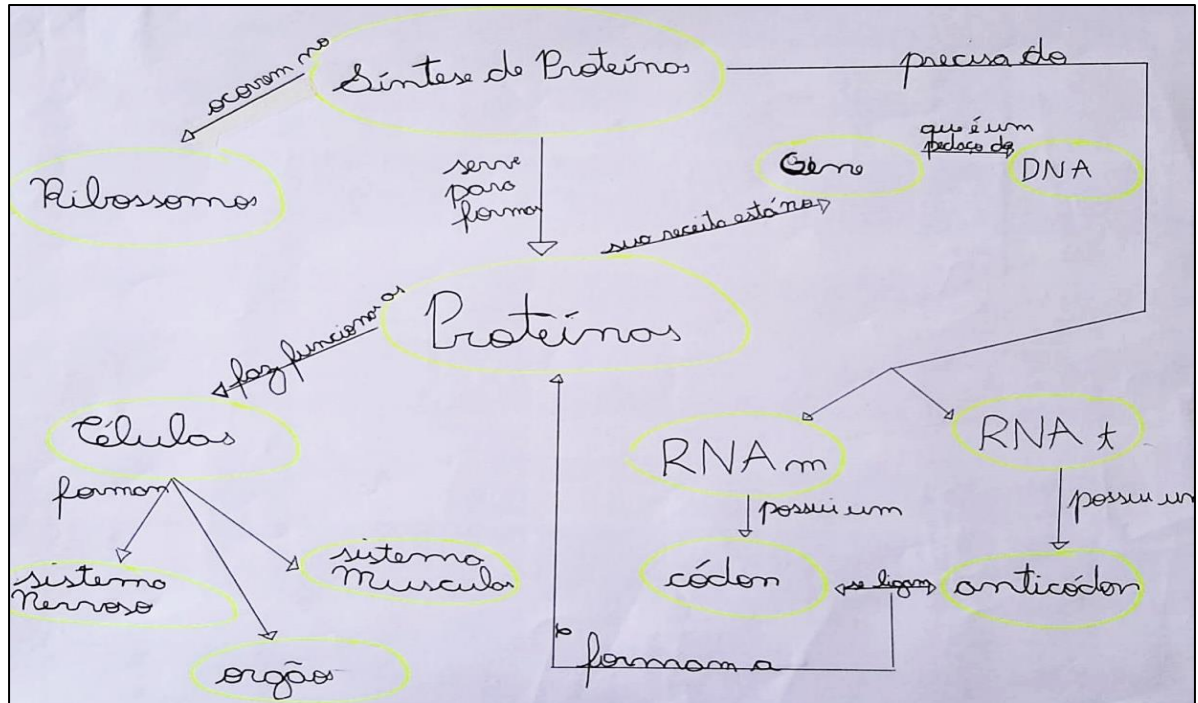 Síntese de Proteínas
ocorrem no
precisa do
Ribossomos
serve
para
formar
Gene
que é um
pedaço do
DNA
sua receita está no
Proteínas
faz funcionar as
Células
formam
sistema
Nervoso
sistema
Muscular
orgãos
RNA m
RNA t
possui um
possui um
códon
se ligam
anticódon
e
formam a